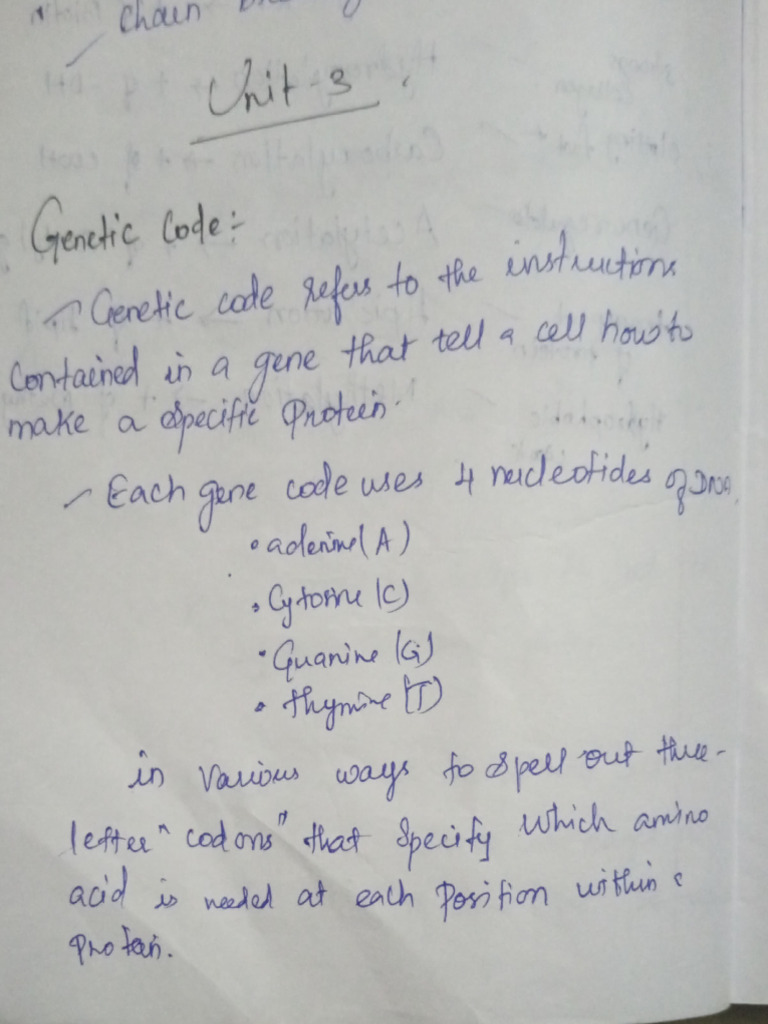 chain
Unit-3
Genetic Code:-
Genetic code refers to the instructions
Contained in a gene that tell a cell how to
make a specific Protein.
Each gene code uses 4 nucleotides of DNA
• adenine (A)
• Cytosine (C)
• Guanine (G)
• thymine (T)
in various ways to spell out three-
letter "codons" that specify which amino
acid is needed at each position within
protein.